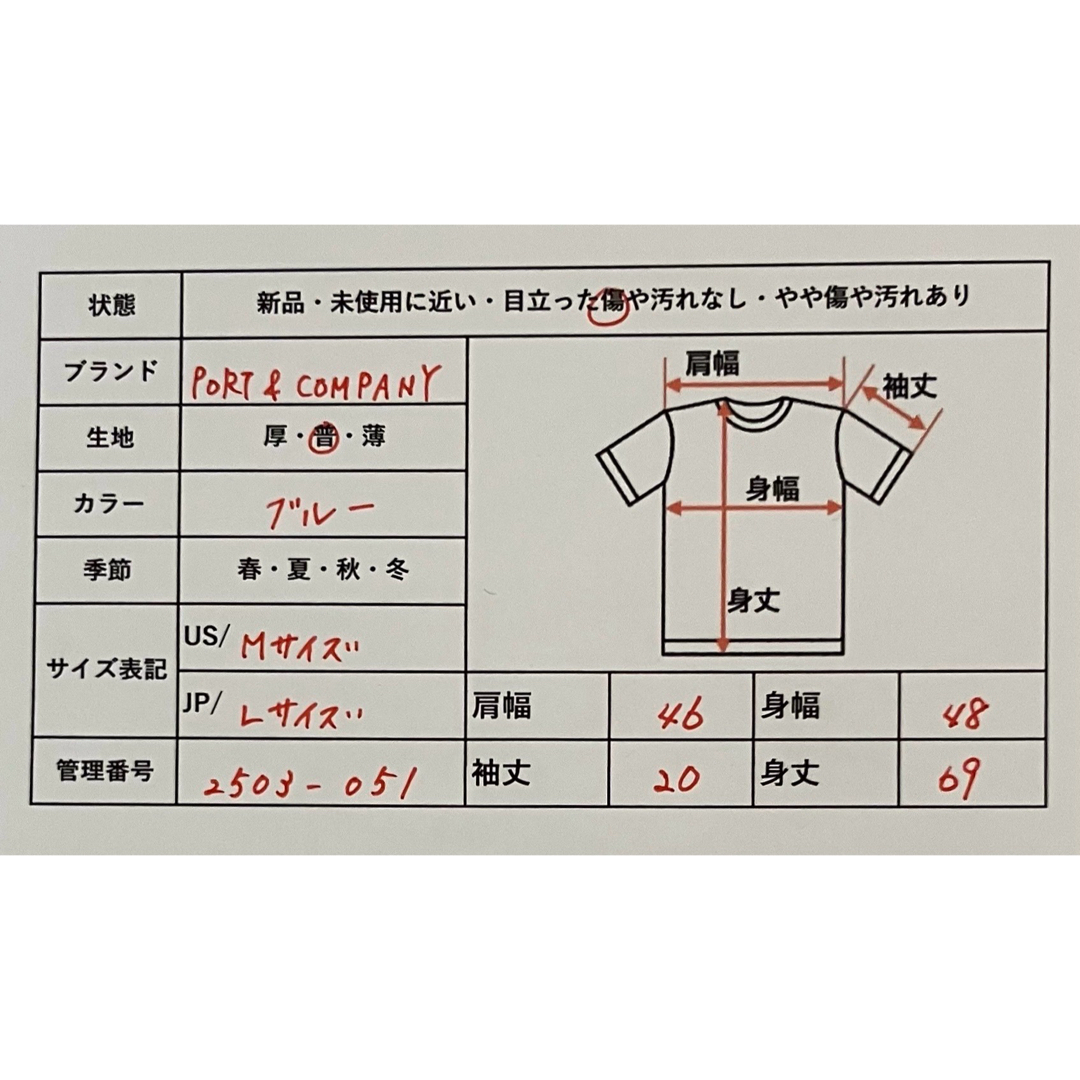 状態 新品・未使用に近い・目立った傷や汚れなし・やや傷や汚れあり
ブランド PORT & COMPANY
生地 厚・普・薄
カラー ブルー
季節 春・夏・秋・冬
サイズ表記 US/ Mサイズ
JP/ Lサイズ
管理番号 2503-051
肩幅
袖丈
身幅
身丈
肩幅 46 身幅 48
袖丈 20 身丈 69